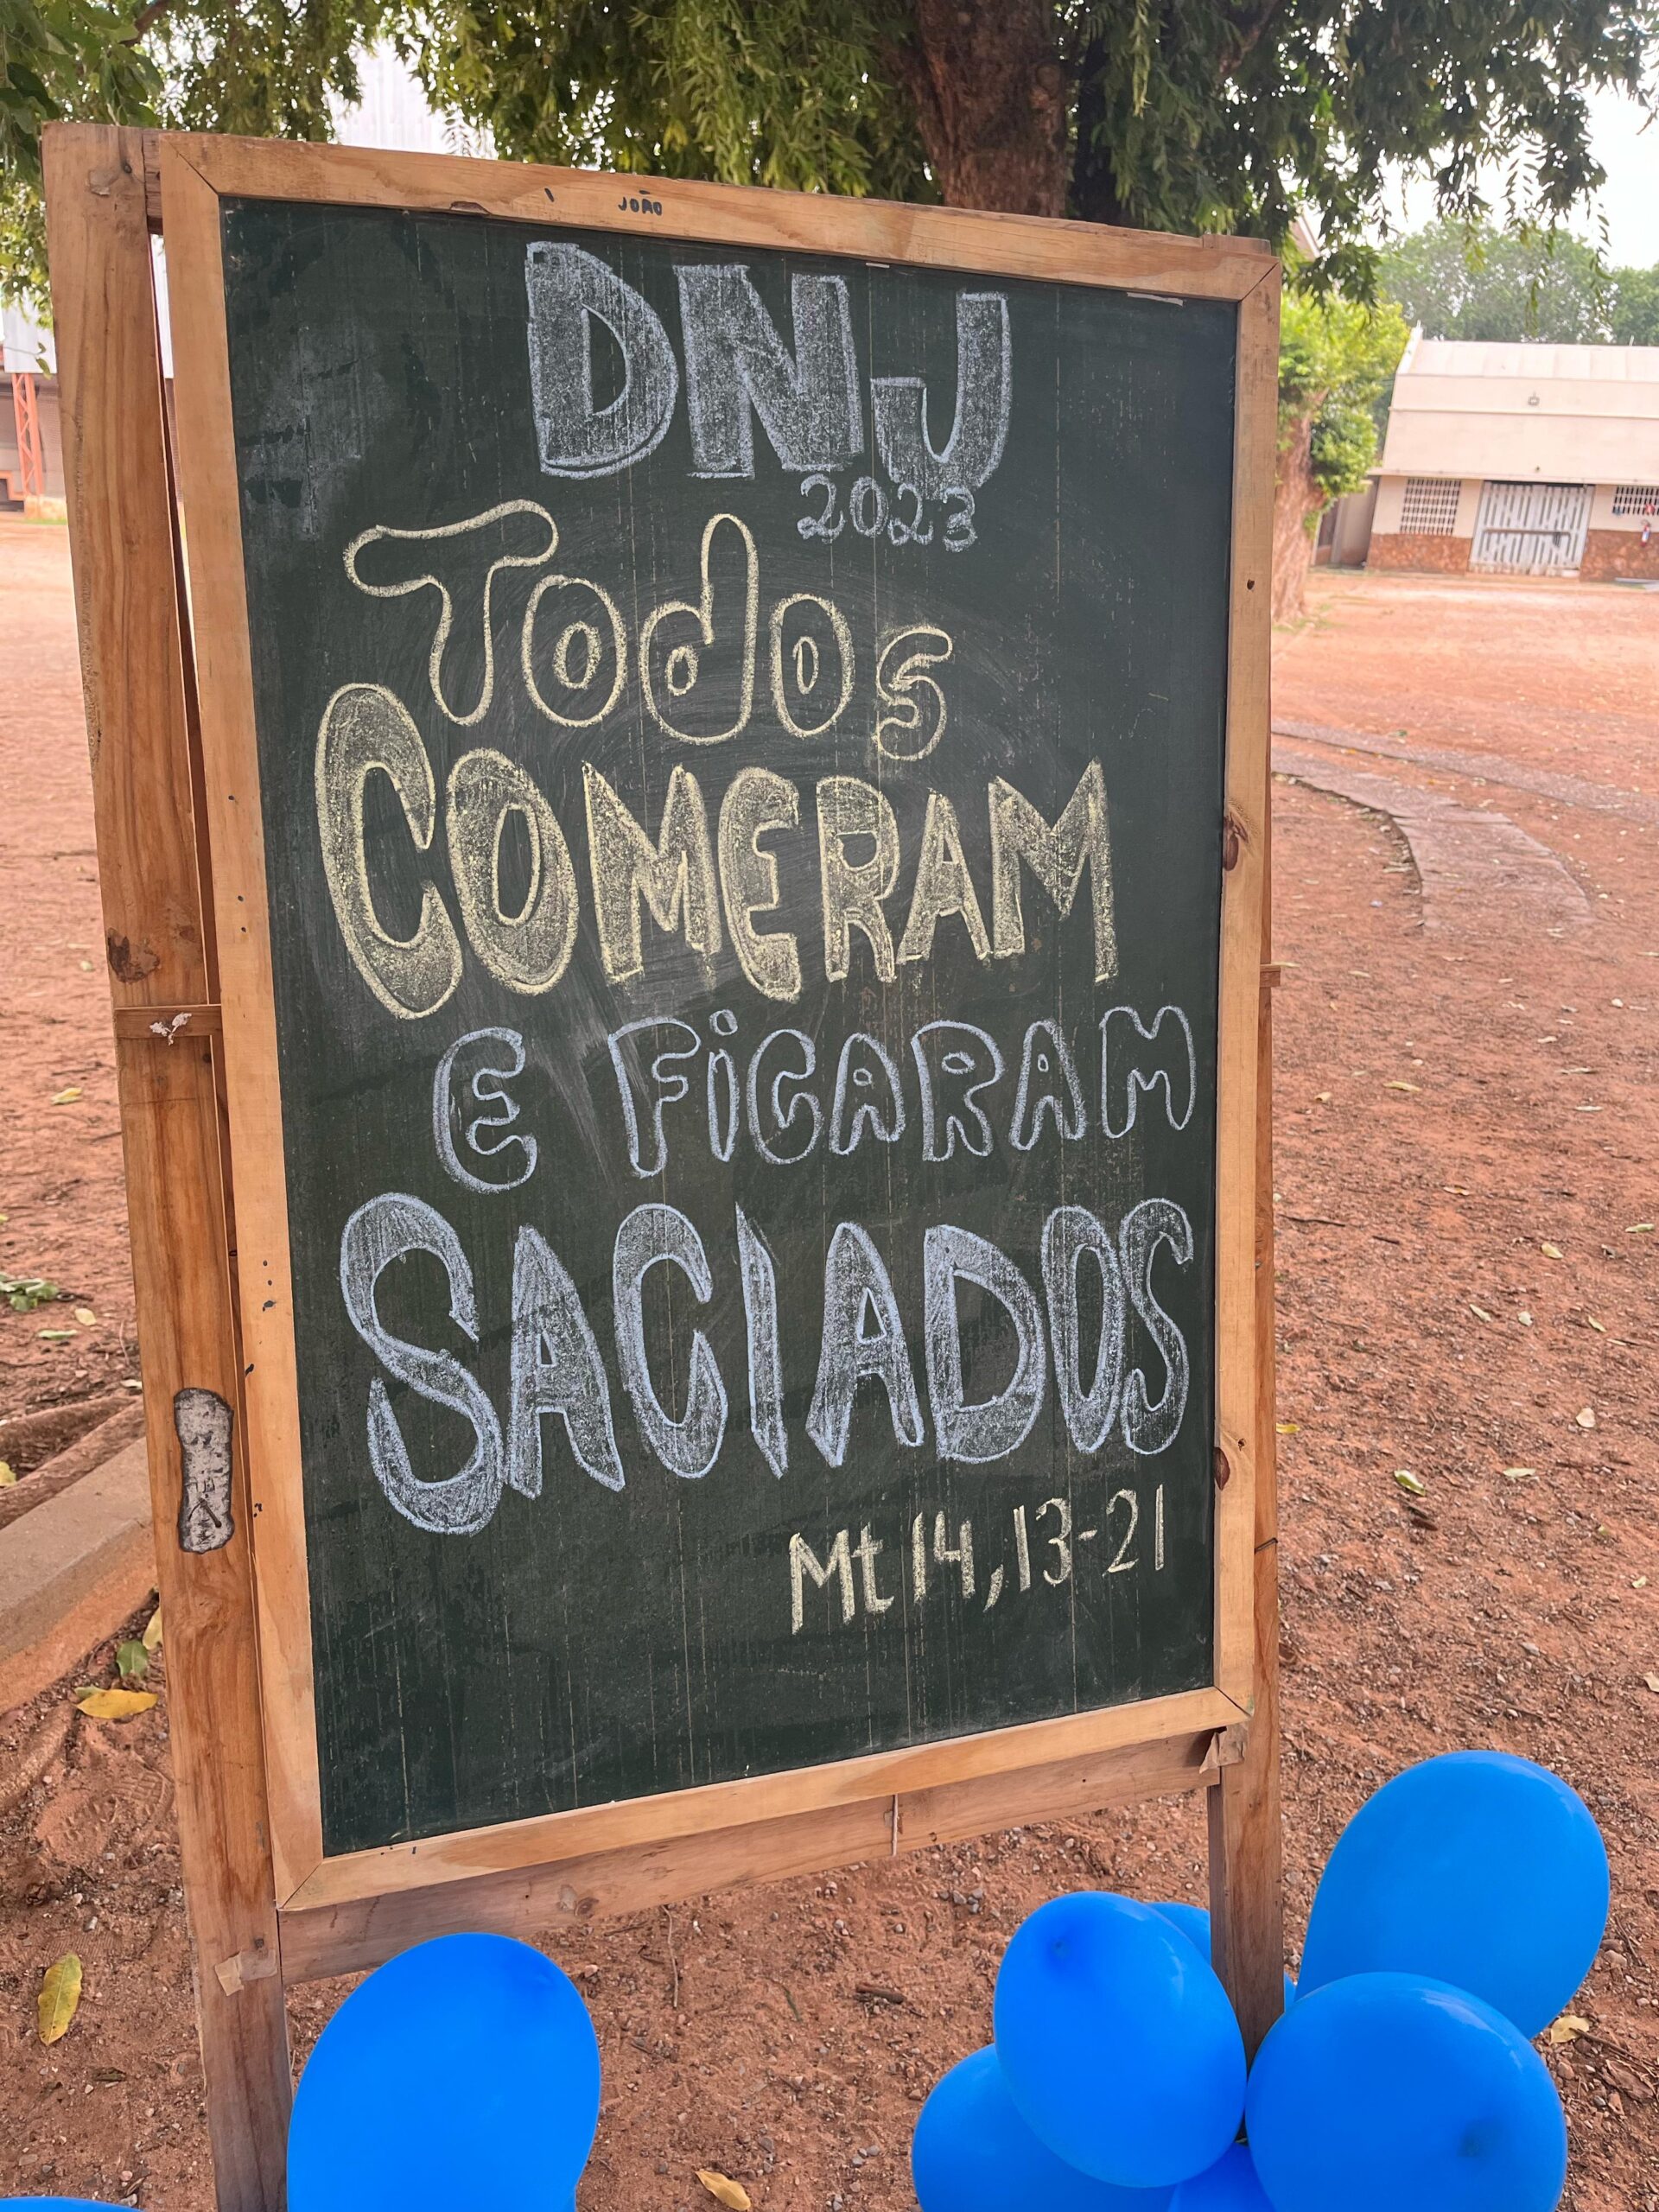 JOÃO
DNJ
2023
Todos
COMERAM
E FiCARAM
SACIADOS
Mt 14,13-21